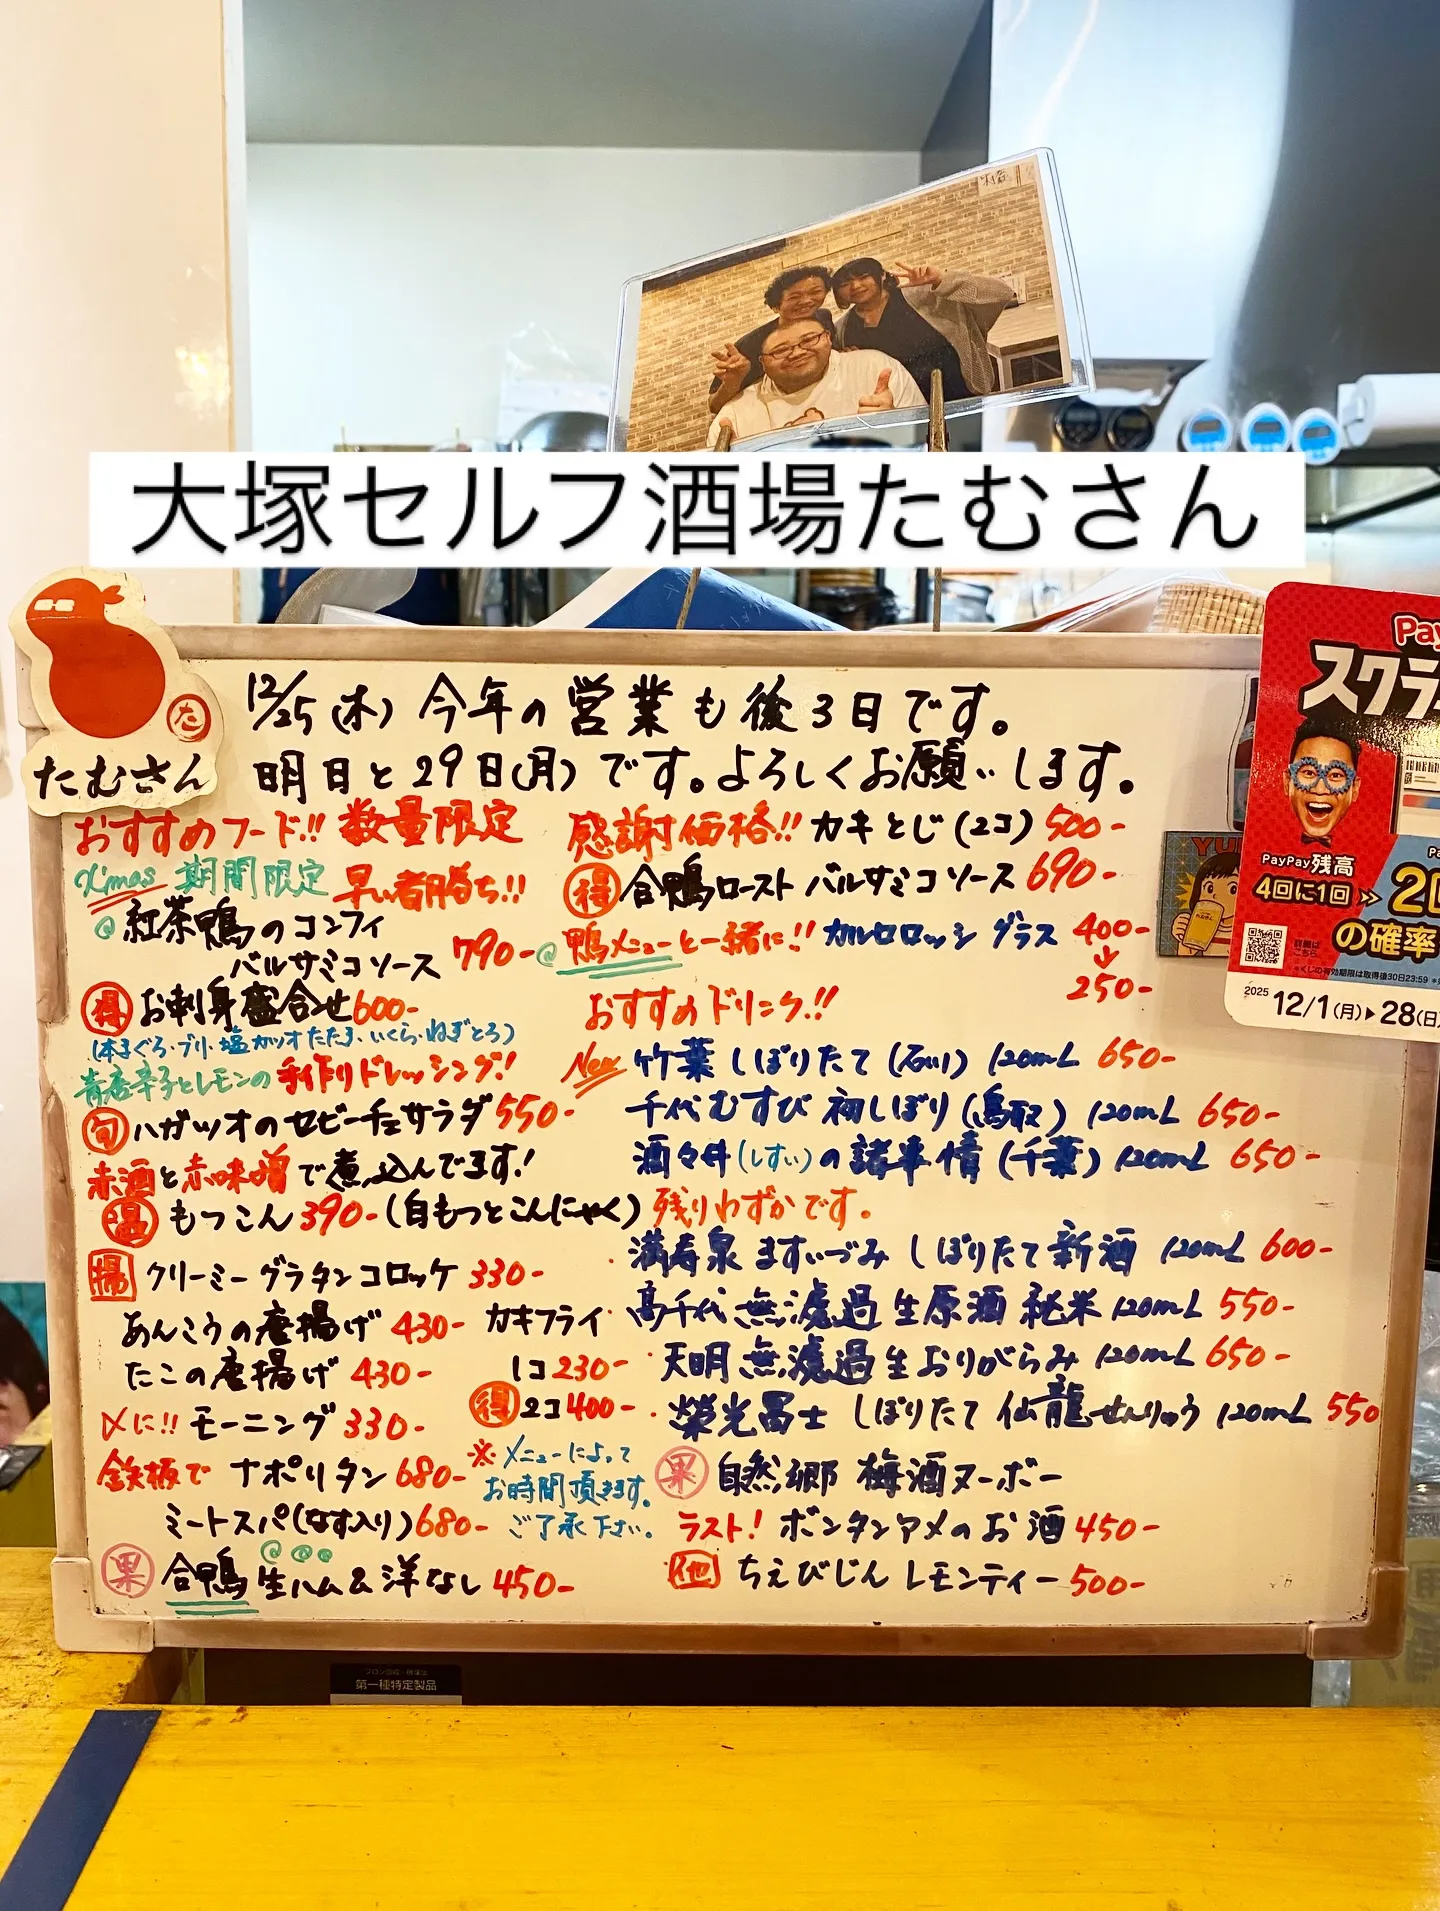 大塚セルフ酒場たむさん
た
たむさん
12/25(木) 今年の営業も後3日です。
明日と29日(月)です。よろしくお願いします。
おすすめフード!! 数量限定
X'mas 期間限定 早い者勝ち!!
紅茶鴨のコンフィ
バルサミコソース 790-
得 お刺身盛合せ 600-
(本まぐろ・ブリ・塩カツオたたき・いくら・ねぎとろ)
青唐辛子とレモンの手作りドレッシング!
旬 ハガツオのセビーチェサラダ 550-
赤酒と赤味噌で煮込んでます!
温 もつこん 390- (白もつとこんにゃく) 残りわずかです。
揚 クリーミーグラタンコロッケ 330-
あんこうの唐揚げ 430-
たこの唐揚げ 430-
カキフライ
1コ 230-
得 2コ 400-
〆に!! モーニング 330-
鉄板で ナポリタン 680-
ミートスパ(なす入り) 680-
※メニューによって
お時間頂きます。
ご了承下さい。
果 合鴨生ハム&洋なし 450-
感謝価格!! カキとじ(2コ) 500-
得 合鴨ロースト バルサミコソース 690-
鴨メニューと一緒に!! カルロロッシ グラス 400-
↓
250-
おすすめドリンク!!
New 竹葉 しぼりたて (石川) 120mL 650-
千代むすび 初しぼり (鳥取) 120mL 650-
酒々井(しすい)の諸事情 (千葉) 120mL 650-
満寿泉 ますいづみ しぼりたて新酒 120mL 600-
高千代 無濾過生原酒 純米 120mL 550-
天明 無濾過生おりがらみ 120mL 650-
榮光冨士 しぼりたて 仙龍 せんりゅう 120mL 550
果 自然郷 梅酒ヌーボー
ラスト! ボンタンアメのお酒 450-
他 ちえびじん レモンティー 500-
Pay
スクラ
PayPay残高
4回に1回
の確率
詳細は
こちら
2025 12/1(月)▶28(日)
第一種特定製品